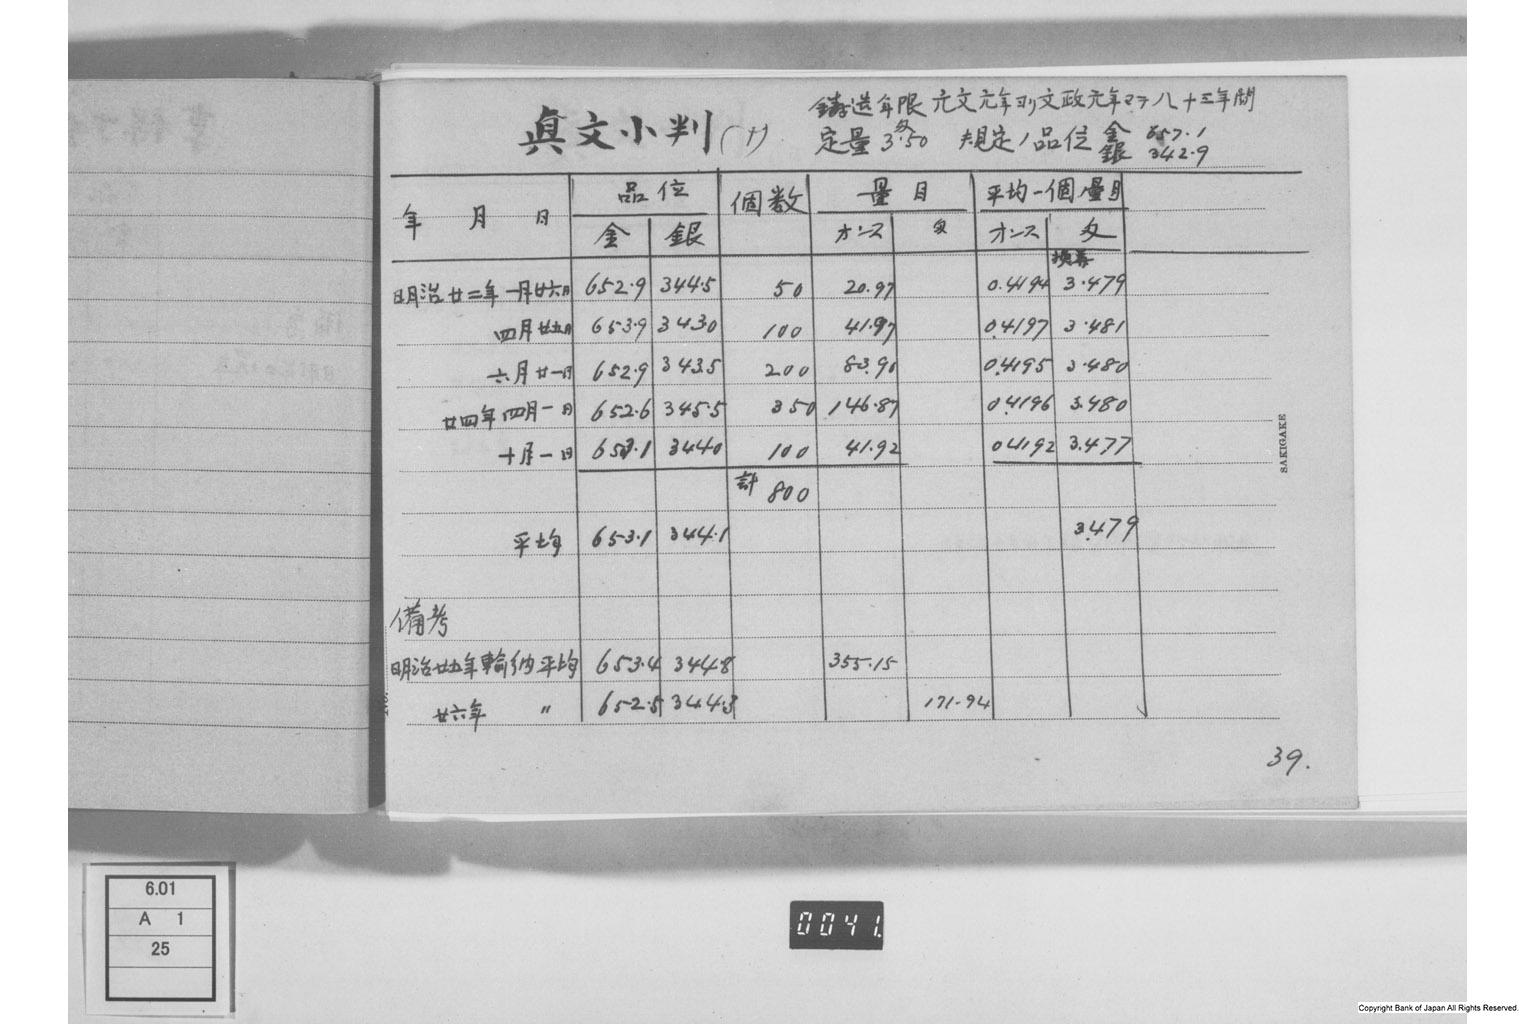 眞文小判(十)
鋳造年限 元文元年ヨリ文政元年マテ八十三年間
定量 匁3.50 規定ノ品位 金 657.1
銀 342.9
年 月 日 品位 個数 量目 平均一個ノ量目
金 銀 オンス 匁 オンス 匁
換算
明治廿二年一月廿六日 652.9 344.5 50 20.97 0.4194 3.479
四月廿五日 653.9 343.0 100 41.97 0.4197 3.481
六月廿一日 652.9 343.5 200 83.90 0.4195 3.480
廿四年四月一日 652.6 345.5 350 146.87 0.4196 3.480
十月一日 653.1 344.0 100 41.92 0.4192 3.477
計 800
平均 653.1 344.1 3.479
備考
明治廿五年輸納平均 653.4 344.8 355.15
廿六年 〃 652.5 344.3 171.94
39.
SAKIGAKE
6.01
A 1
25
0041.
Copyright Bank of Japan All Rights Reserved.